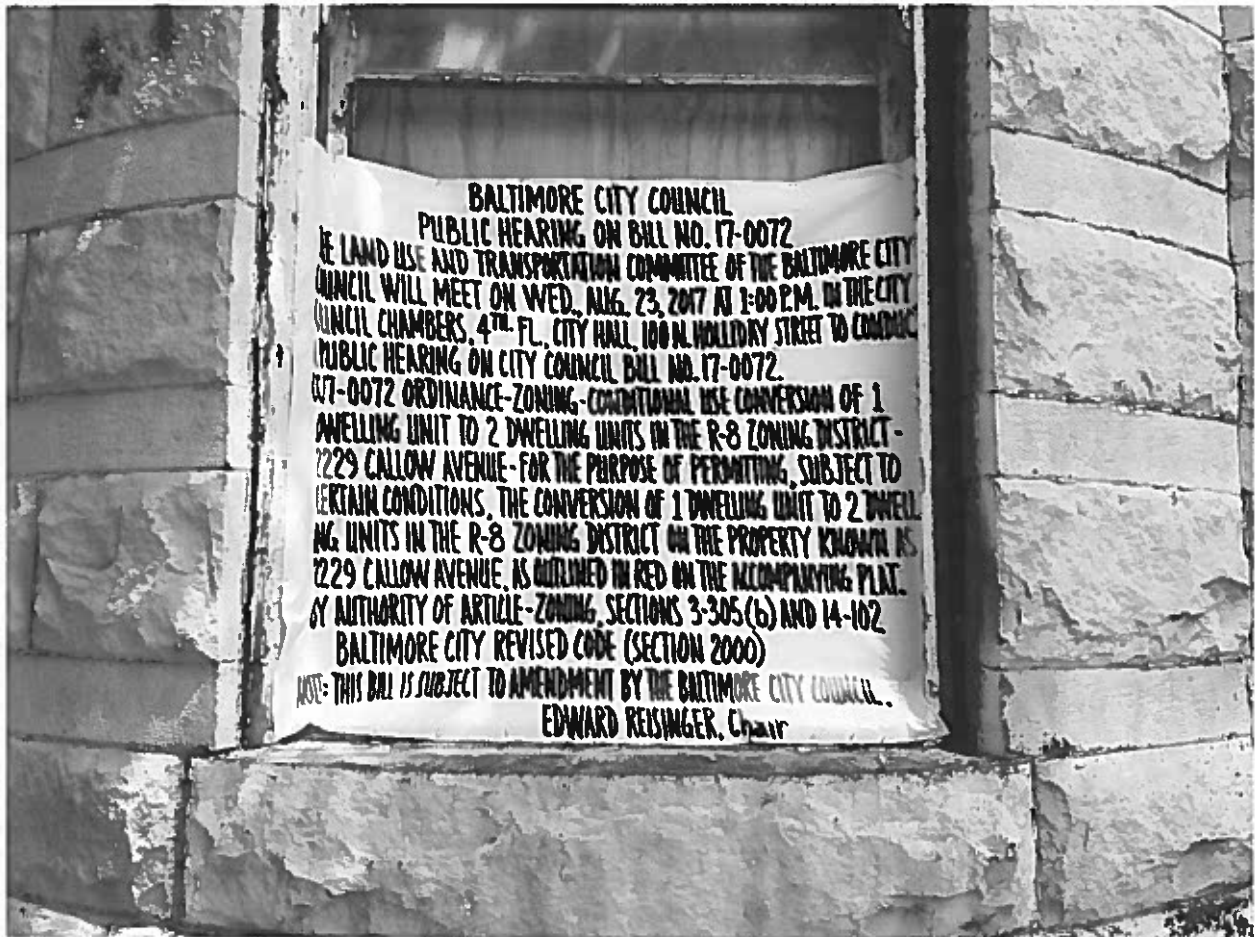 BALTIMORE CITY COUNCIL
PUBLIC HEARING ON BILL NO. 17-0072
HE LAND USE AND TRANSPORTATION COMMITTEE OF THE BALTIMORE CITY
OUNCIL WILL MEET ON WED., AUG. 23, 2017 AT 1:00 P.M. IN THE CITY
OUNCIL CHAMBERS, 4TH. FL., CITY HALL, 100 N. HOLLIDAY STREET TO CONDUCT
PUBLIC HEARING ON CITY COUNCIL BILL NO. 17-0072.
CC17-0072 ORDINANCE-ZONING-CONDITIONAL USE CONVERSION OF 1
DWELLING UNIT TO 2 DWELLING UNITS IN THE R-8 ZONING DISTRICT-
2229 CALLOW AVENUE-FOR THE PURPOSE OF PERMITTING, SUBJECT TO
CERTAIN CONDITIONS, THE CONVERSION OF 1 DWELLING UNIT TO 2 DWELL
NG UNITS IN THE R-8 ZONING DISTRICT ON THE PROPERTY KNOWN AS
2229 CALLOW AVENUE, AS OUTLINED IN RED ON THE ACCOMPANYING PLAT.
BY AUTHORITY OF ARTICLE-ZONING, SECTIONS 3-305(b) AND 14-102
BALTIMORE CITY REVISED CODE (SECTION 2000)
NOTE: THIS BILL IS SUBJECT TO AMENDMENT BY THE BALTIMORE CITY COUNCIL.
EDWARD REISINGER, Chair